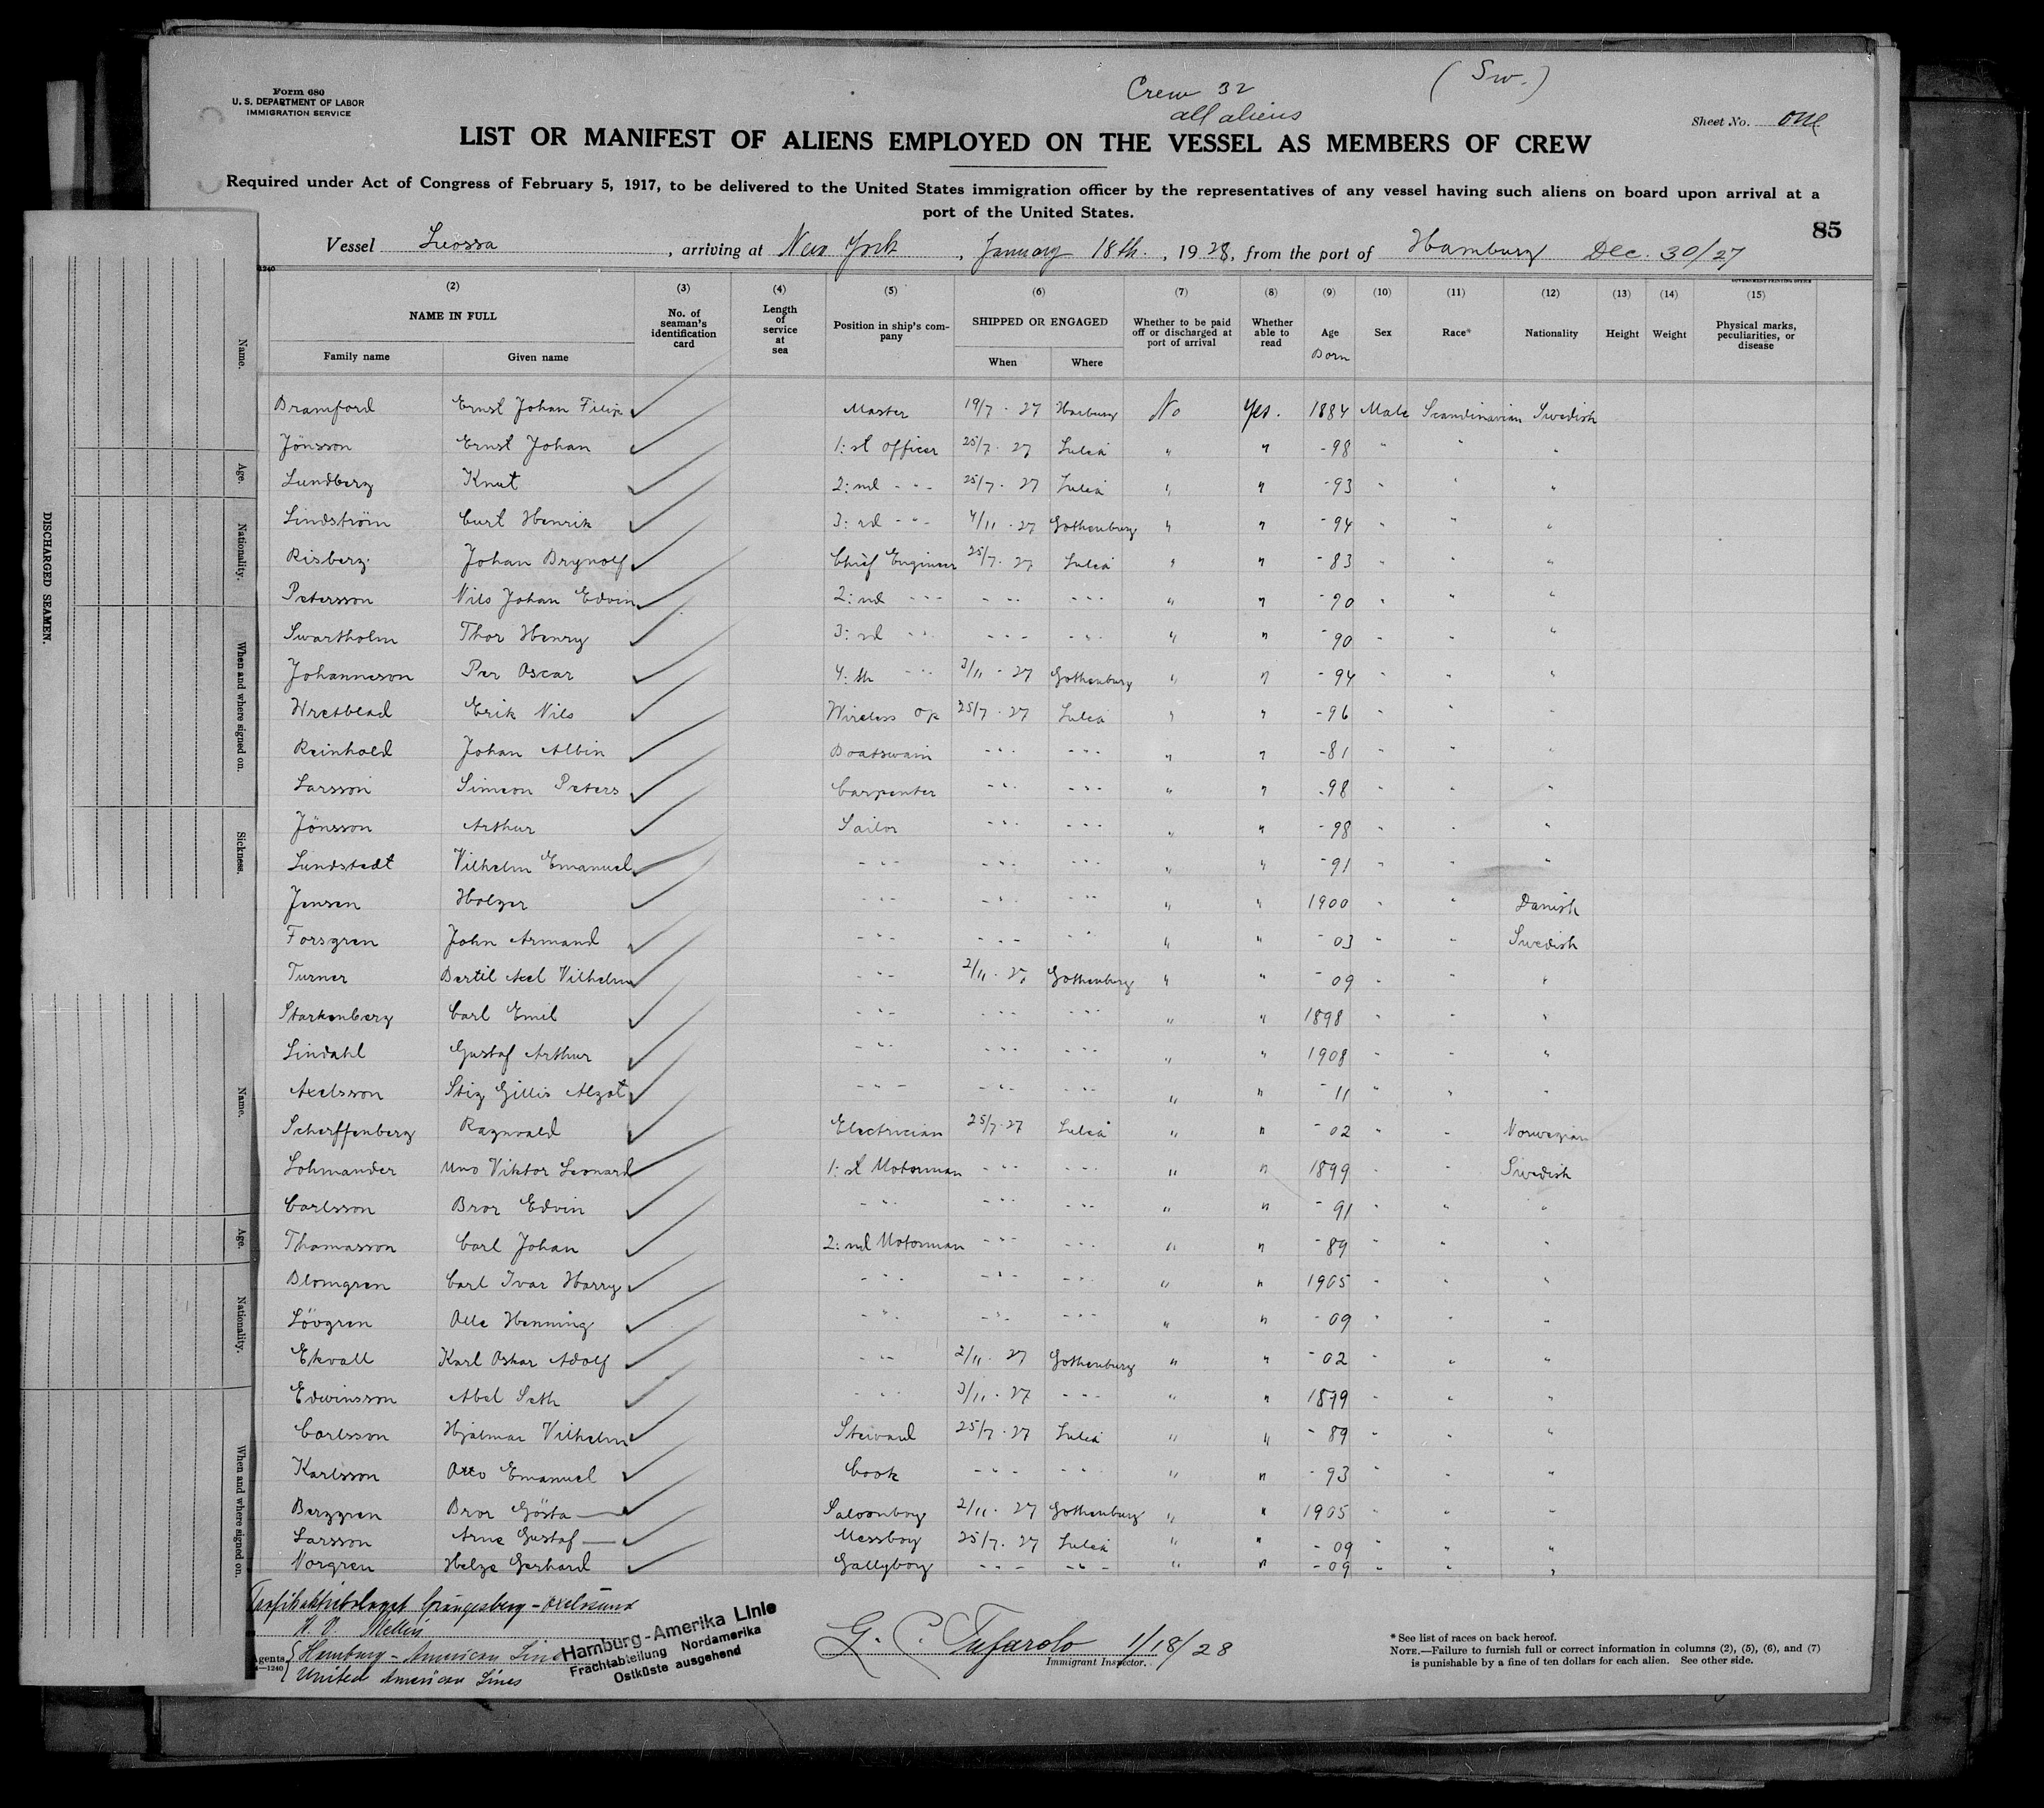 Crew 32
(Sw.)
all aliens
Form 680
U. S. DEPARTMENT OF LABOR
IMMIGRATION SERVICE
Sheet No. one
LIST OR MANIFEST OF ALIENS EMPLOYED ON THE VESSEL AS MEMBERS OF CREW
Required under Act of Congress of February 5, 1917, to be delivered to the United States immigration officer by the representatives of any vessel having such aliens on board upon arrival at a
port of the United States.
85
Vessel Luossa, arriving at New York, January 18th., 1928, from the port of Hamburg Dec. 30/27
1240
GOVERNMENT PRINTING OFFICE
(2) (3) (4) (5) (6) (7) (8) (9) (10) (11) (12) (13) (14) (15)
NAME IN FULL No. of seaman's identification card Length of service at sea Position in ship's company SHIPPED OR ENGAGED Whether to be paid off or discharged at port of arrival Whether able to read Age Sex Race* Nationality Height Weight Physical marks, peculiarities, or disease
Family name Given name When Where Born
Bramford Ernst Johan Filip Master 19/7 - 27 Harburg No Yes. 1884 Male Scandinavian Swedish
Jönsson Ernst Johan 1:st Officer 25/7 - 27 Luleå " " -98 " " "
Lundberg Knut 2:nd - " - 25/7 - 27 Luleå " " -93 " " "
Lindström Curt Henrik 3:rd - " - 4/11 - 27 Gothenburg " " -94 " " "
Risberg Johan Brynolf Chief Engineer 25/7 - 27 Luleå " " -83 " " "
Petersson Nils Johan Edvin 2:nd - " - - " - - " - " " -90 " " "
Swartholm Thor Henry 3:rd - " - - " - - " - " " -90 " " "
Johanneson Per Oscar 4:th - " - 3/11 - 27 Gothenburg " " -94 " " "
Wretblad Erik Nils Wireless op 25/7 - 27 Luleå " " -96 " " "
Reinhold Johan Albin Boatswain - " - - " - " " -81 " " "
Larsson Simeon Peters Carpenter - " - - " - " " -98 " " "
Jönsson Arthur Sailor - " - - " - " " -98 " " "
Lundstedt Vilhelm Emanuel - " - - " - - " - " " -91 " " "
Jensen Holger - " - - " - - " - " " 1900 " " Danish
Forsgren John Armand - " - - " - - " - " " -03 " " Swedish
Turner Bertil Axel Vilhelm - " - 2/11 - 27 Gothenburg " " -09 " " "
Starkenberg Carl Emil - " - - " - - " - " " 1898 " " "
Lindahl Gustaf Arthur - " - - " - - " - " " 1908 " " "
Axelsson Stig Gillis Algot - " - - " - - " - " " -11 " " "
Scherffenberg Ragnvald Electrician 25/7 - 27 Luleå " " -02 " " Norwegian
Lohmander Uno Viktor Leonard 1:st Motorman - " - - " - " " 1899 " " Swedish
Carlsson Bror Edvin - " - - " - - " - " " -91 " " "
Thomasson Carl Johan 2:nd Motorman - " - - " - " " -89 " " "
Blomgren Carl Ivar Harry - " - - " - - " - " " 1905 " " "
Lövgren Olle Henning - " - - " - - " - " " -09 " " "
Ekvall Karl Oskar Adolf - " - 2/11 - 27 Gothenburg " " -02 " " "
Edwinsson Abel Seth - " - 3/11 - 27 - " - " " 1899 " " "
Carlsson Hjalmar Vilhelm Steward 25/7 - 27 Luleå " " -89 " " "
Karlsson Otto Emanuel Cook - " - - " - " " -93 " " "
Berggren Bror Gösta Saloonboy 2/11 - 27 Gothenburg " " 1905 " " "
Larsson Arne Gustaf Messboy 25/7 - 27 Luleå " " -09 " " "
Norgren Helge Gerhard Gallyboy - " - - " - " " -09 " " "
Trafikaktiebolaget Grängesberg-Oxelösund
Agents Hamburg-American Line
United American Lines
14—1240
Hamburg-Amerika Linie
Frachtabteilung Nordamerika
Ostküste ausgehend
G. C. Tufarolo 1/18/28
Immigrant Inspector.
* See list of races on back hereof.
NOTE.—Failure to furnish full or correct information in columns (2), (5), (6), and (7)
is punishable by a fine of ten dollars for each alien. See other side.
DISCHARGED SEAMEN.
Name.
Age.
Nationality.
When and where signed on.
Sickness.
Name.
Age.
Nationality.
When and where signed on.